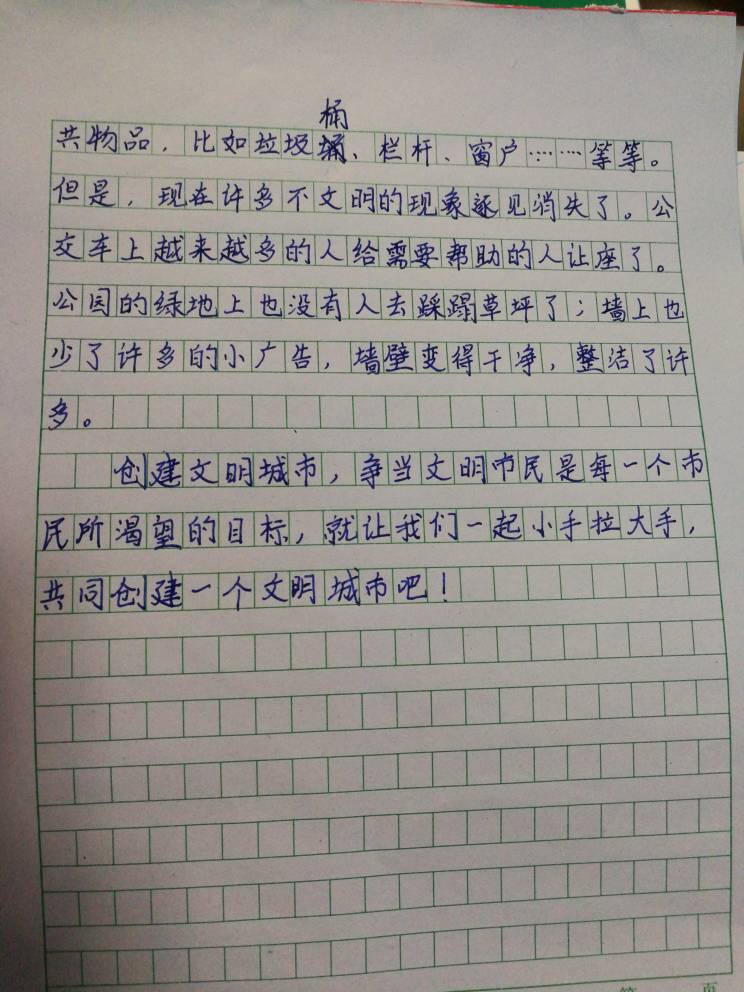 桶
共物品，比如垃圾、栏杆、窗户……等等。
但是，现在许多不文明的现象逐见消失了。公
交车上越来越多的人给需要帮助的人让座了。
公园的绿地上也没有人去踩蹋草坪了；墙上也
少了许多的小广告，墙壁变得干净，整洁了许
多。
创建文明城市，争当文明市民是每一个市
民所渴望的目标，就让我们一起小手拉大手，
共同创建一个文明城市吧！